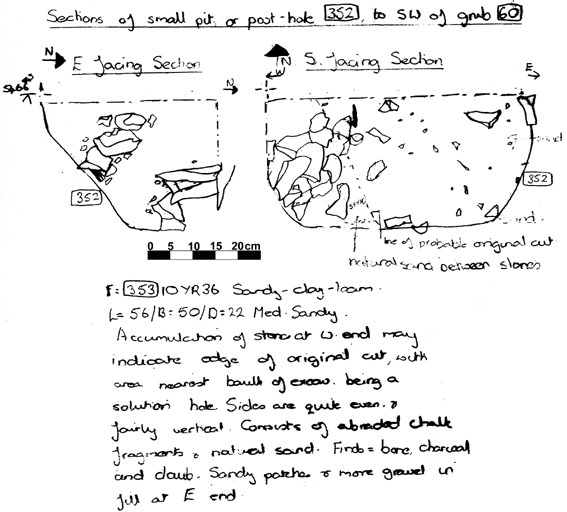 Sections of small pit, or post-hole 352, to SW of grub 60
N E facing Section N
W S. facing Section E
352
352
0 5 10 15 20cm
line of probable original cut
natural sand between stones
F= 353 10YR36 Sandy-clay-loam.
L= 56/B=50/D=22 Med. Sandy.
Accumulation of stone at W. end may
indicate edge of original cut, with
area nearest baulk of excav. being a
solution hole Sides are quite even &
fairly vertical. Consists of abraded chalk
fragments & natural sand. Finds = bone, charcoal
and daub. Sandy patches & more gravel in
fill at E end.